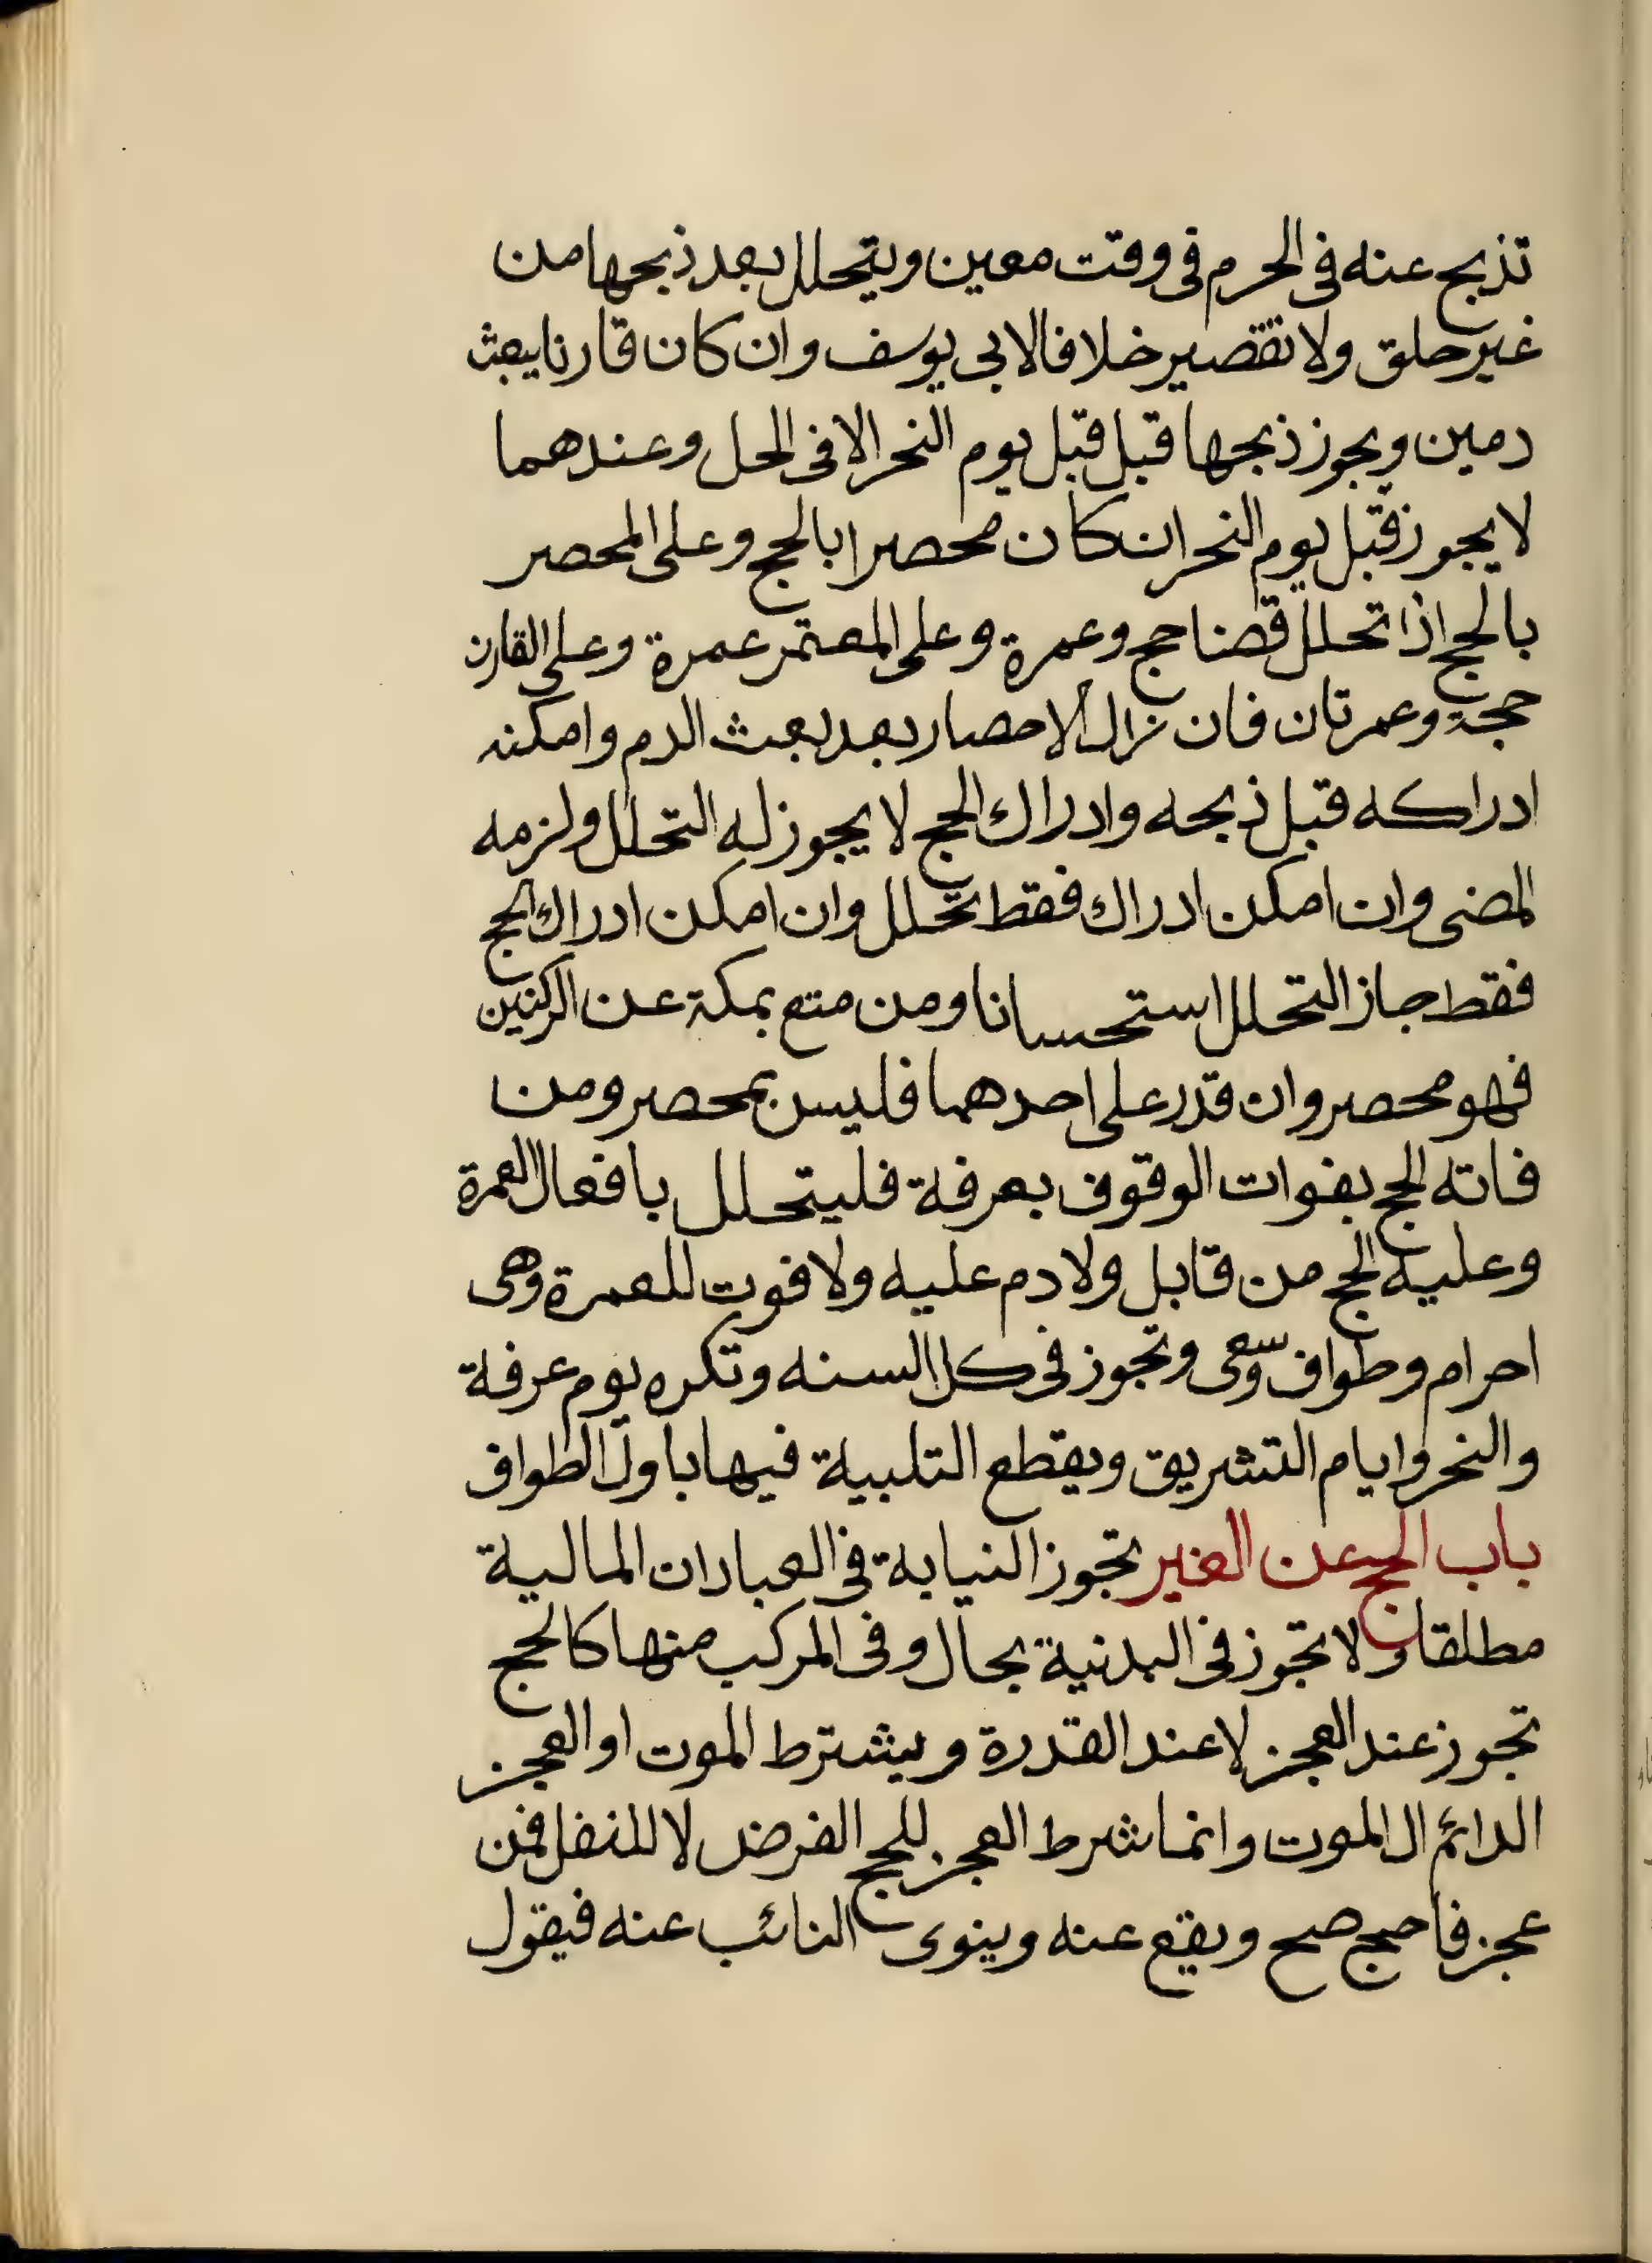 تذبح عنه فى الحرم فى وقت معين ويتحلل بعد ذبحها من
غير حلق ولا تقصير خلافا لابى يوسف وان كان قارنا يبعث
دمين ويجوز ذبحها قبل قبل يوم النحر الا فى الحل وعندهما
لا يجوز قبل يوم النحر ان كان محصرا بالحج وعلى المحصر
بالحج اذا تحلل قضا حج وعمرة وعلى المعتمر عمرة وعلى القارن
حجة وعمرتان فان زال الاحصار بعد بعث الدم وامكنه
ادراكه قبل ذبحه وادراك الحج لا يجوز له التحلل ولزمه
المضى وان امكن ادراك فقط تحلل وان امكن ادراك الحج
فقط جاز التحلل استحسانا ومن منع بمكة عن الركنين
فهو محصر وان قدر على احدهما فليس بمحصر ومن
فاته الحج بفوات الوقوف بعرفة فليتحلل بافعال العمرة
وعليه الحج من قابل ولا دم عليه ولا فوت للعمرة وهى
احرام وطواف وسعى وتجوز فى كل السنه وتكره يوم عرفة
والنحر وايام التشريق ويقطع التلبية فيها باول الطواف
باب الحج عن الغير تجوز النيابة فى العبادات المالية
مطلقا ولا تجوز فى البدنية بحال وفى المركب منها كالحج
تجوز عند العجز لا عند القدرة ويشترط الموت او العجز
الدائم الى الموت وانما شرط العجز للحج الفرض لا للنفل فمن
عجز فاحج صح ويقع عنه وينوى النائب عنه فيقول